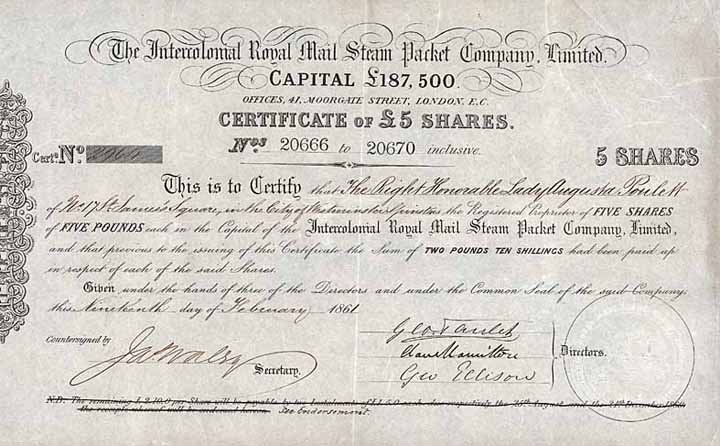 The Intercolonial Royal Mail Steam Packet Company, Limited.
CAPITAL £187,500.
OFFICES, 41, MOORGATE STREET, LONDON. E.C.
CERTIFICATE OF £5 SHARES.
Nos 20666 to 20670 inclusive.
Certe. No.
5 SHARES
This is to Certify that The Right Honorable Lady Augusta Poulett
of No 17 St James's Square, in the City of Westminster Spinster is the Registered Proprietor of FIVE SHARES
of FIVE POUNDS each in the Capital of the Intercolonial Royal Mail Steam Packet Company, Limited,
and that previous to the issuing of this Certificate the Sum of TWO POUNDS TEN SHILLINGS had been paid up
in respect of each of the said Shares.
Given under the hands of three of the Directors and under the Common Seal of the said Company,
this Nineteenth day of February 1861
Countersigned by
Secretary.
Hamilton
Geo Ellison
Directors.
N.B. The remaining £2.10.0 per Share will be payable by two Instalments of £1.5.0 each due respectively the 25th August and the 24th December 1860
the receipts whereof will be endorsed hereon. See Endorsement.